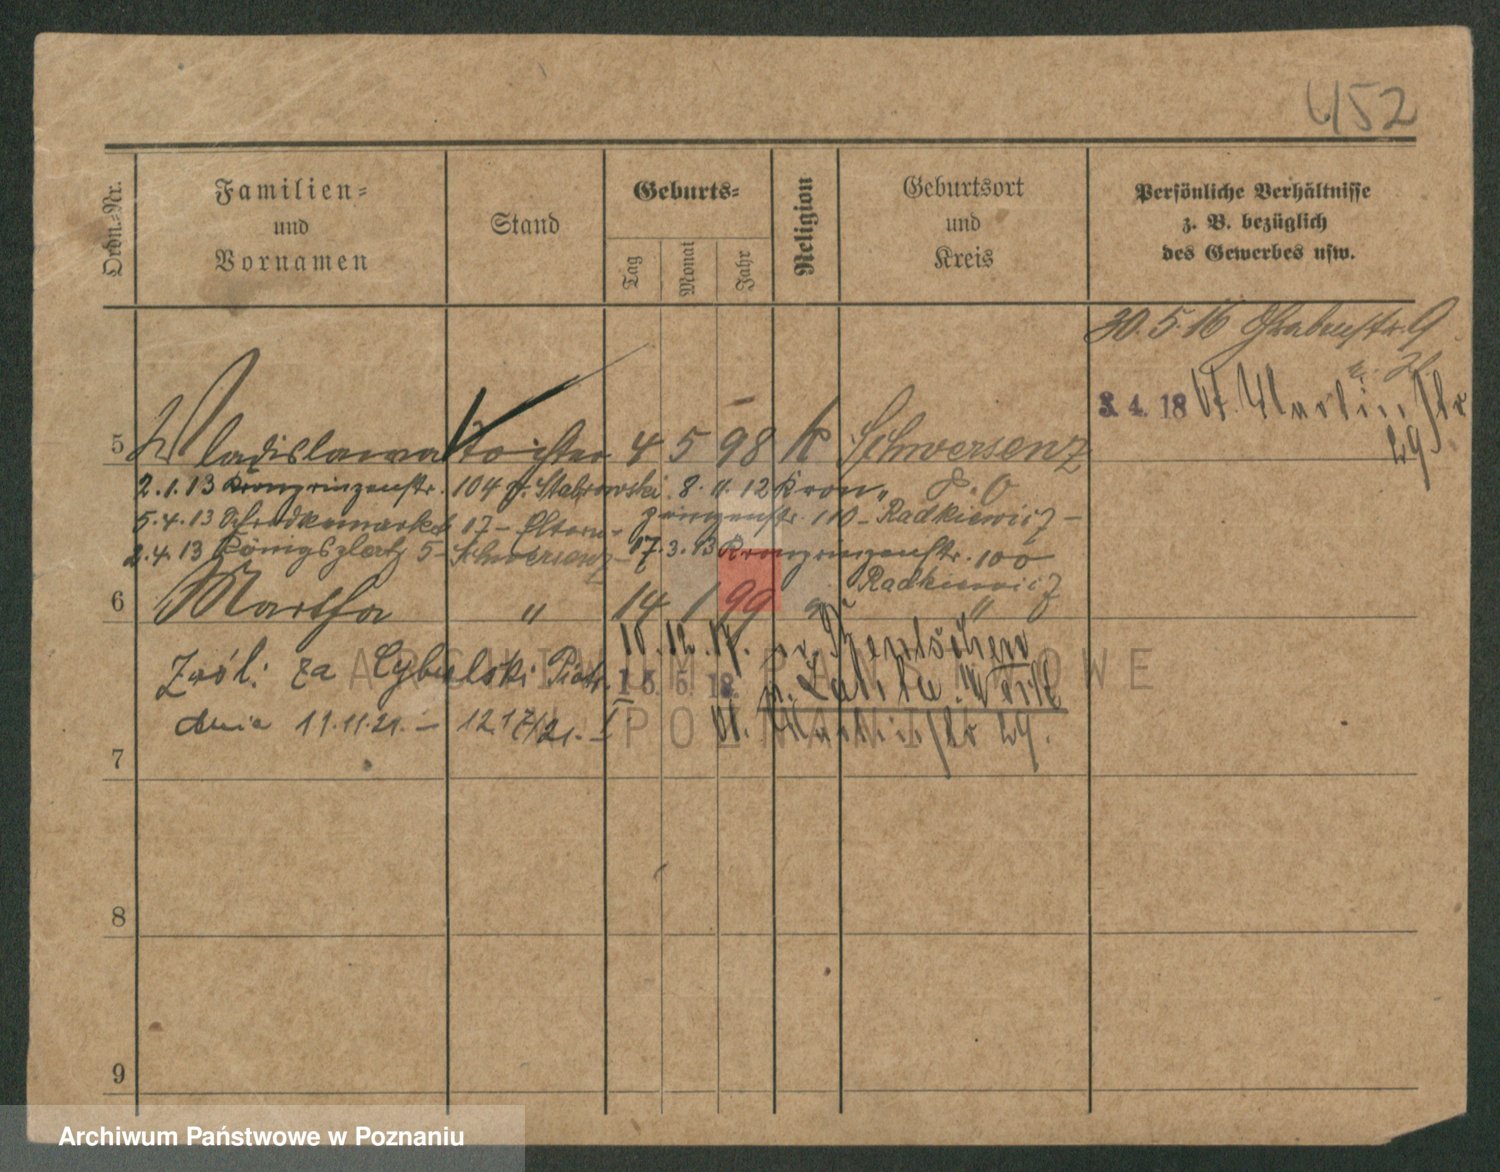 452
Ordn.-Nr.
Familien-
und
Vornamen
Stand
Geburts-
Tag
Monat
Jahr
Religion
Geburtsort
und
Kreis
Persönliche Verhältnisse
z. B. bezüglich
des Gewerbes usw.
30.5.16 Grabenstr. 9
3. 4. 18 St. Martinstr
29
5 Wladislawa Tochter 4 5 98 k Schwersenz
2.1.13 Kronprinzenstr. 104 Stabrowski 8. 11. 12 Kron
5.4.13 17 - Eltern - prinzenstr. 110 - Radkiewicz -
2.4.13 Königsplatz 5 - Schwersenz - 17.3.13 Kronprinzenstr. 100
Radkiewicz
6 Martha " 14 1 99 "
10. 12. 17. Bentschen
Zról: za Cybulski Piotr. 15. 5. 18.
dnia 11.11.21. - 12.17/21. St. Martinstr 29.
7
8
9
ARCHIWUM PAŃSTWOWE
W POZNANIU
Archiwum Państwowe w Poznaniu